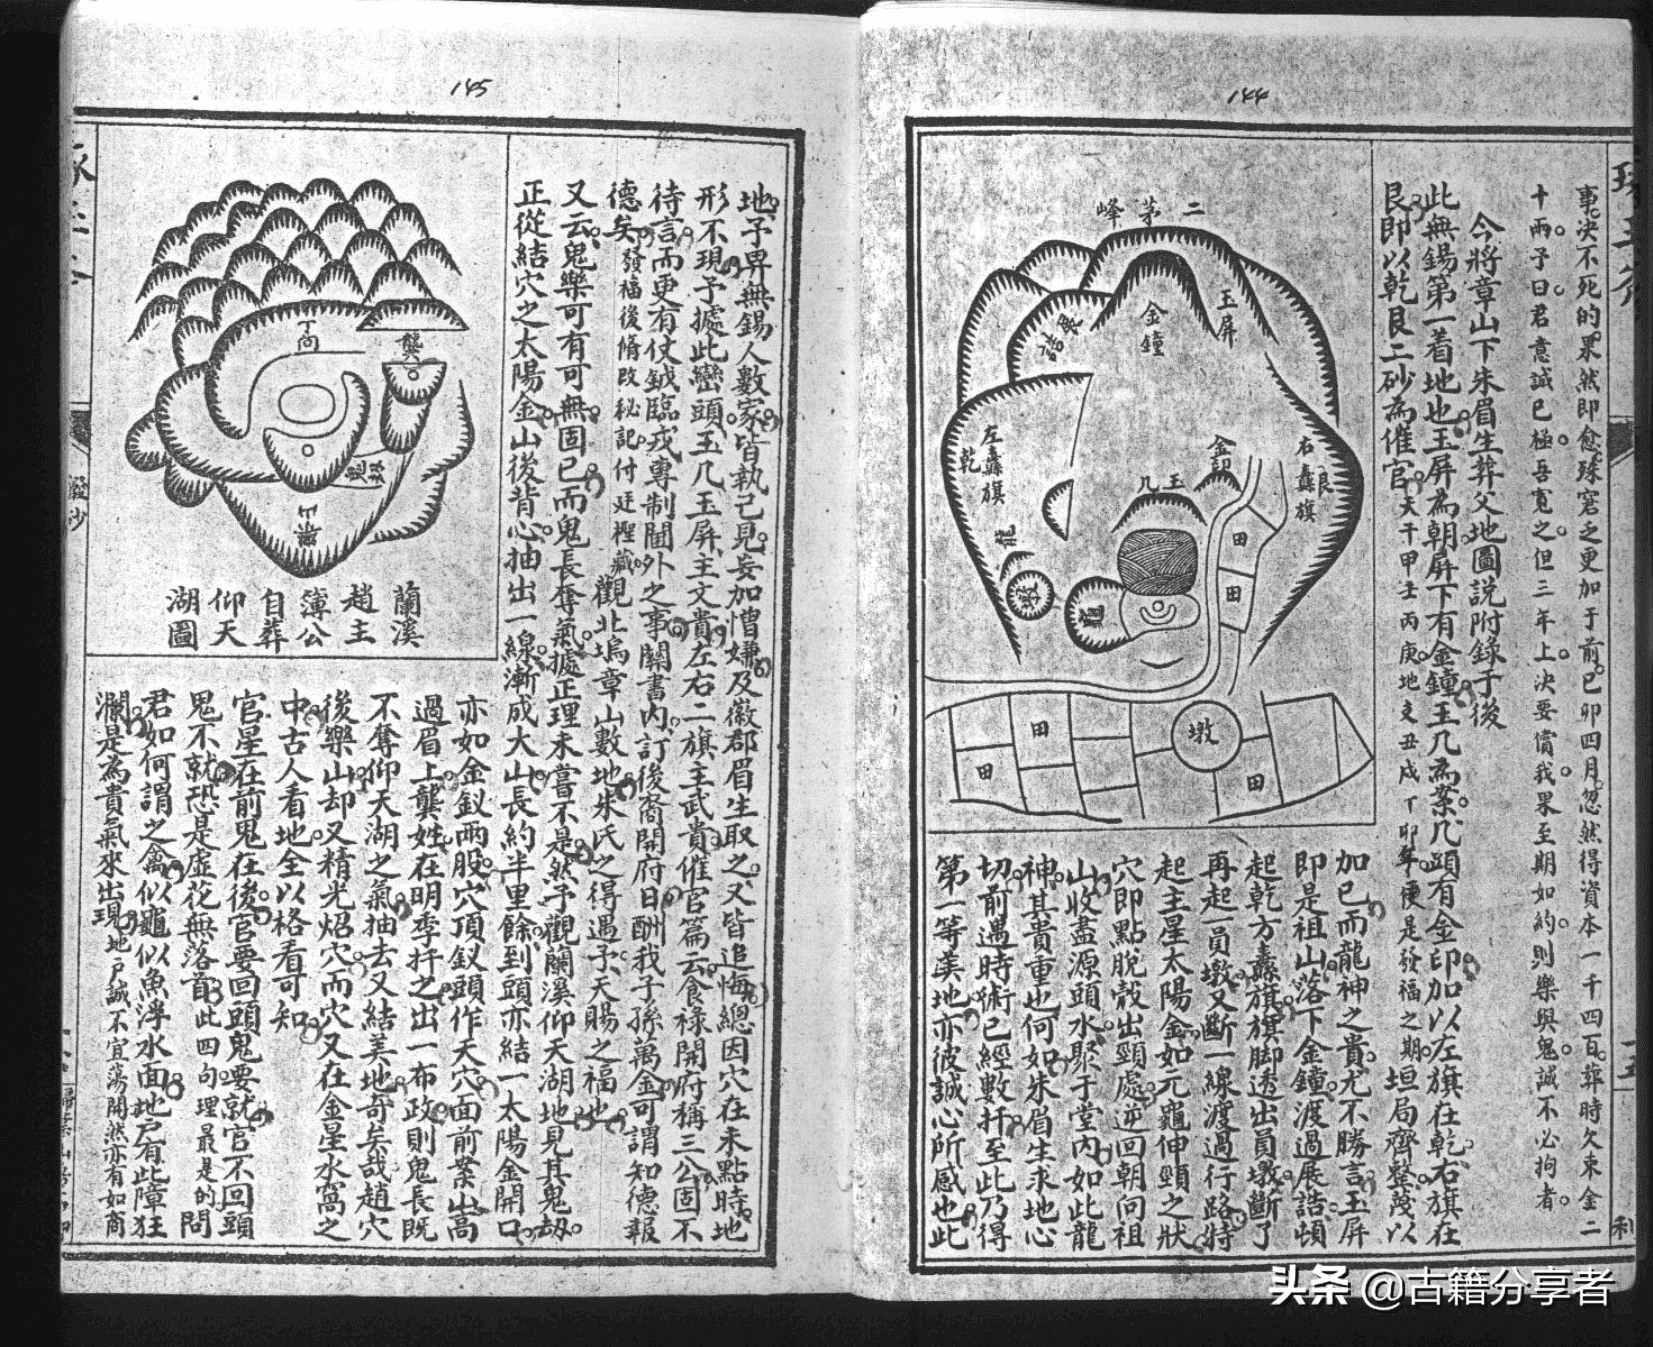 144
事决不死的果然即愈殊窘乏更加于前已卯四月忽然得資本一千四百葬時欠束金二
十兩予曰君意誠已極吾寬之但三年上决要償我果至期如約則樂與鬼誠不必拘者
今將章山下朱眉生葬父地圖説附錄于後
此無錫第一着地也玉屏為朝屏下有金鐘玉几為案几頭有金印加以左旗在乾右旗在
艮即以乾艮二砂為催官天干甲壬丙庚地支丑戌丁卯年便是發福之期垣局齊整護以
二茅峰
玉屏
金鐘
誥
金印
玉几
右纛旗
艮
左纛旗
乾
龍
墩
田
田
墩
田
田
田
加已而龍神之貴尤不勝言玉屏
即是祖山落下金鐘渡過展誥頓
起乾方纛旗旗脚透出員墩斷了
再起一員墩又斷一線渡過行路特
起主星太陽金如元龜伸頸之狀
穴即點脫殼出頸處逆回朝向祖
山收盡源頭水聚于堂内如此龍
神其貴重也何如朱眉生求地心
切前遇時術已經數扦至此乃得
第一等美地亦彼誠心所感也此
利
145
地予畀無錫人數家皆執己見妄加憎嫌及徽郡眉生取之又皆追悔總因穴在未點時地
形不現予據此巒頭玉几玉屏主文貴左右二旗主武貴催官篇云食祿開府稱三公固不
待言而更有仗鉞臨戎專制閫外之事關書内訂後裔開府日酬我子孫萬金可謂知德報
德矣發福後脩改秘記付廷樫藏觀北塢章山數地朱氏之得遇予天賜之福也
又云鬼樂可有可無固已而鬼長奪氣據正理未嘗不是然予觀蘭溪仰天湖地見其鬼刼
正從結穴之太陽金山後背心抽出一線漸成大山長約半里餘到頭亦結一太陽金開口
丁向
龔
蘭溪
趙主
簿公
自葬
仰天
湖圖
亦如金釵兩股穴頂釵頭作天穴面前案山高
過眉上龔姓在明季扞之出一布政則鬼長既
不奪仰天湖之氣抽去又結美地奇矣哉趙穴
後樂山却又精光炤穴而穴又在金星水窩之
中古人看地全以格看可知
官星在前鬼在後官要回頭鬼要就官不回頭
鬼不就恐是虛花無落首此四句理最是的問
君如何謂之禽似龜似魚浮水面地戶有此障狂
瀾是為貴氣來出現地戶誠不宜蕩開然亦有如商
頭条 @古籍分享者